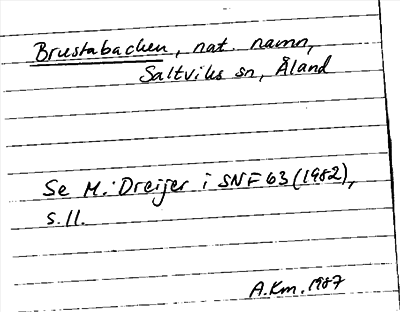 Brustabacken, nat. namn,
Saltviks sn, Åland
Se M. Dreijer i SNF 63 (1982),
s. 11.
A.Km. 1987